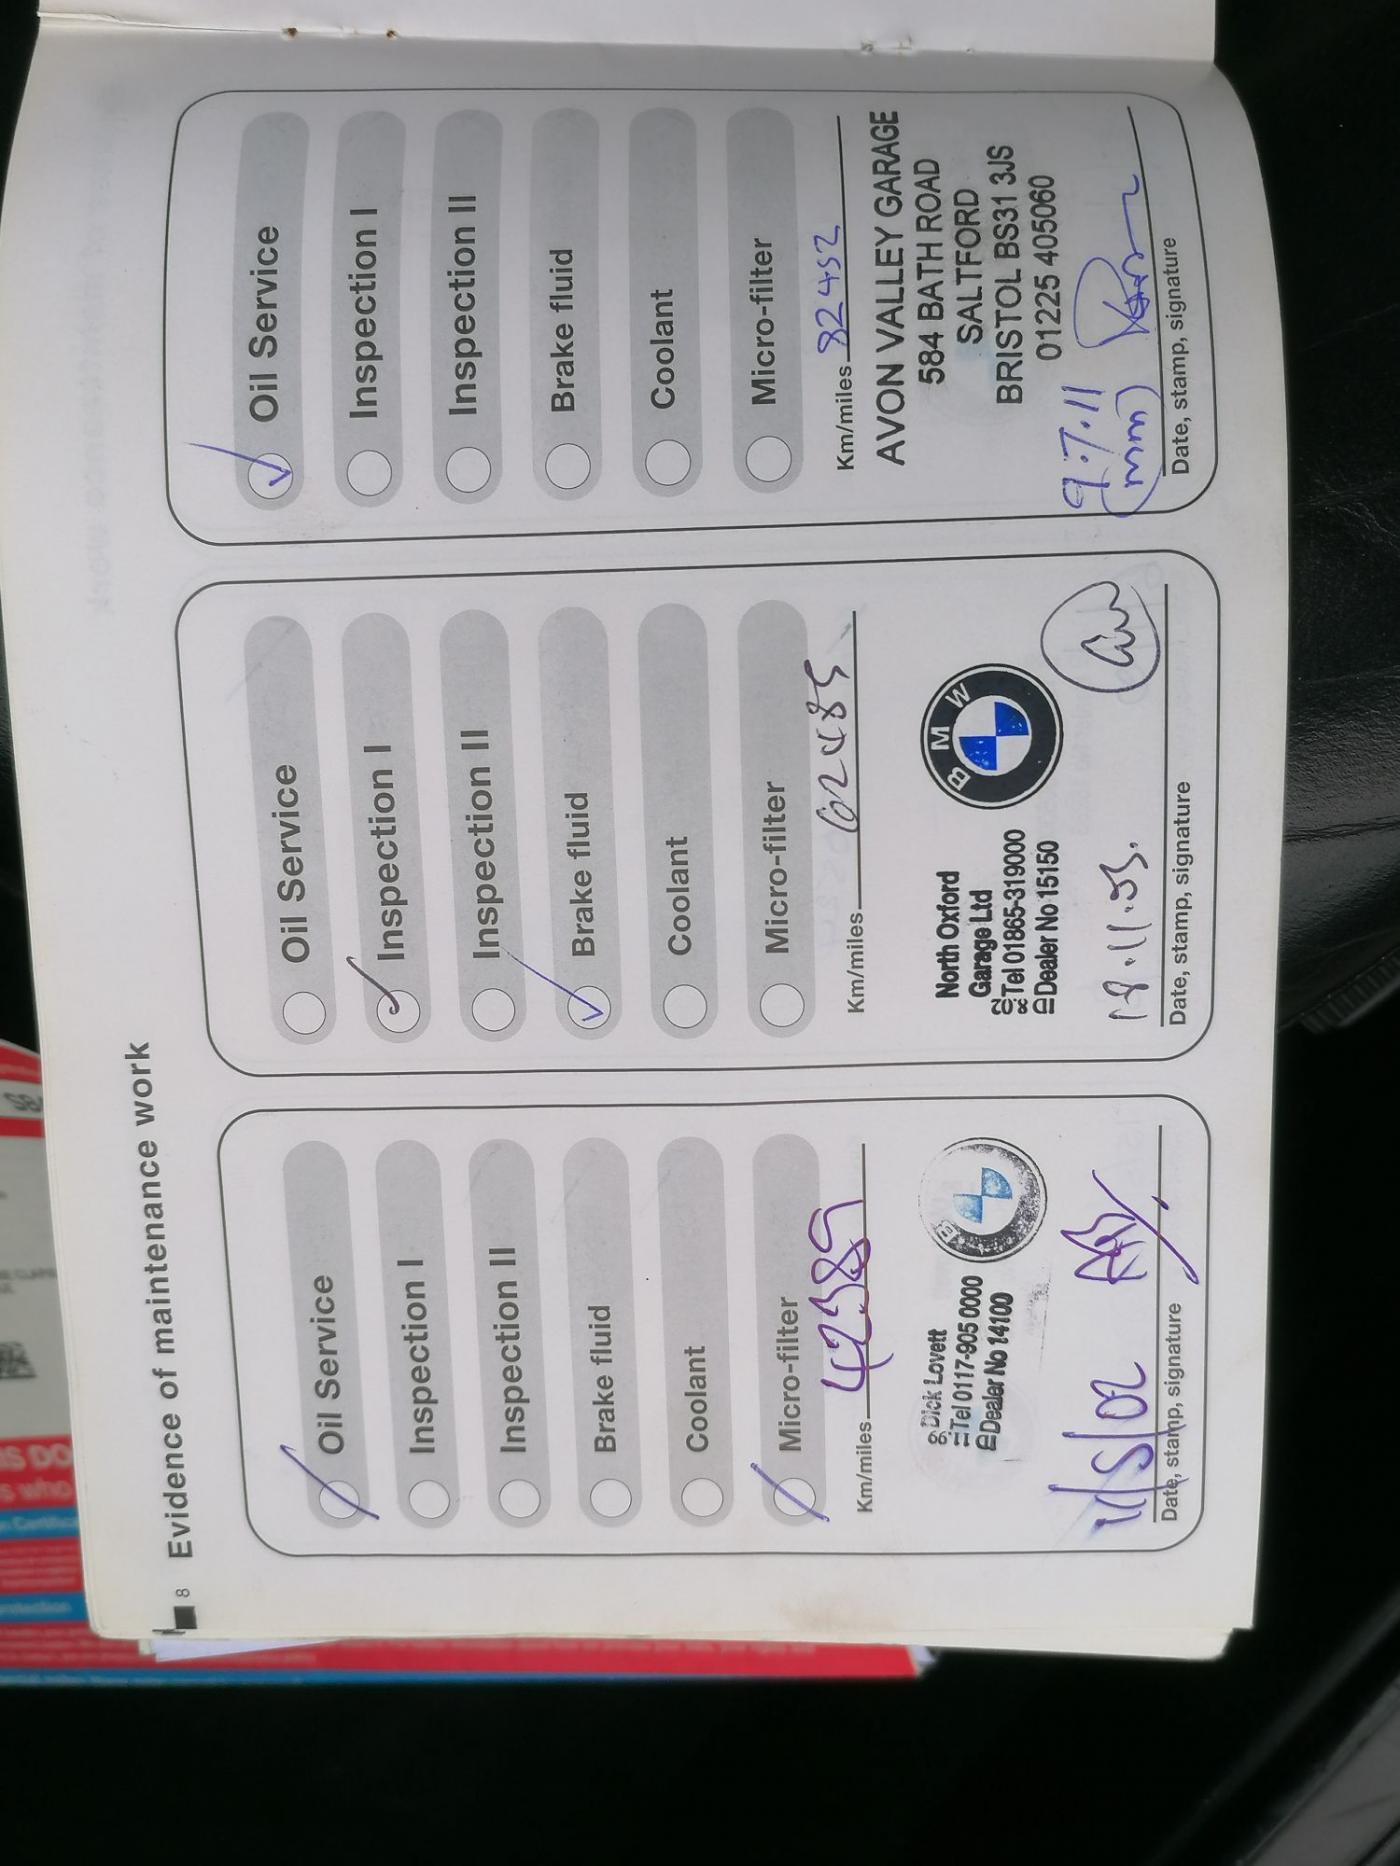 8 Evidence of maintenance work
Oil Service
Inspection I
Inspection II
Brake fluid
Coolant
Micro-filter
Km/miles 42389
Dick Lovett
Tel 0117-905 0000
Dealer No 14100
B
11/5/02
Date, stamp, signature
Oil Service
Inspection I
Inspection II
Brake fluid
Coolant
Micro-filter
Km/miles 62485
North Oxford
Garage Ltd
Tel 01865-319000
Dealer No 15150
BMW
18.11.03.
Date, stamp, signature
Oil Service
Inspection I
Inspection II
Brake fluid
Coolant
Micro-filter
Km/miles 82452
AVON VALLEY GARAGE
584 BATH ROAD
SALTFORD
BRISTOL BS31 3JS
01225 405060
9.7.11
Date, stamp, signature